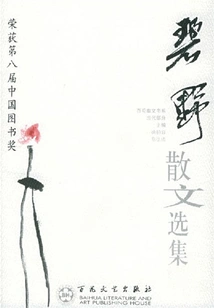 荣获第八届中国图书奖
碧野
散文选集
百花文艺出版社
BAIHUA LITERATURE AND
ART PUBLISHING HOUSE